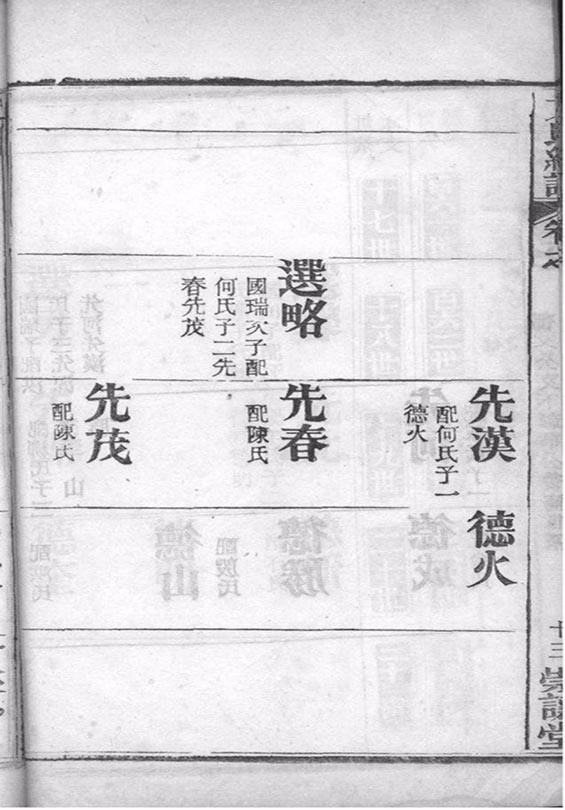 選略
國瑞次子配
何氏子二先
春先茂
先漢
配何氏子一
德火
先春
配陳氏
先茂
配陳氏
德火
卷
十三
堂